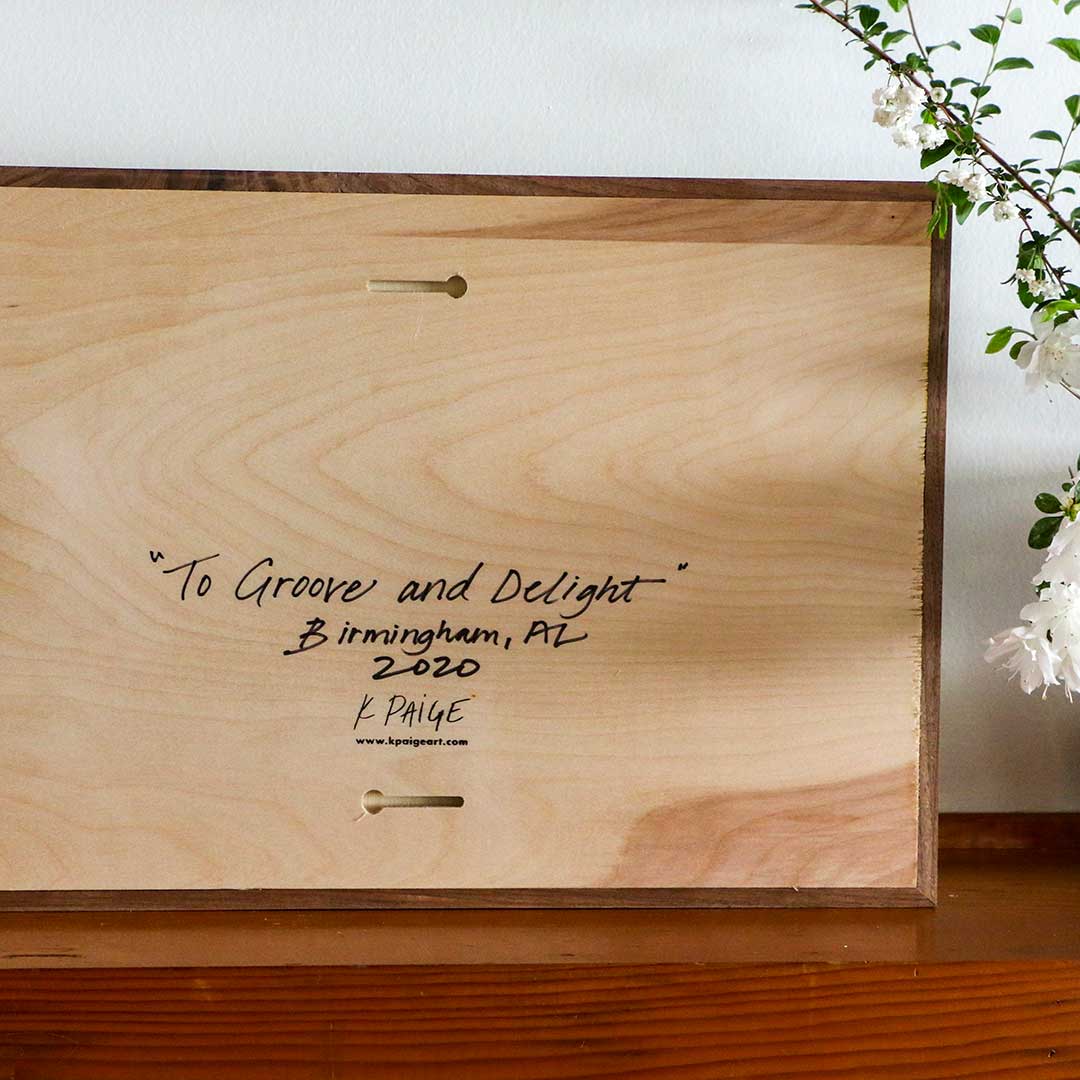 "To Groove and Delight"
Birmingham, AL
2020
K PAiGE
www.kpaigeart.com